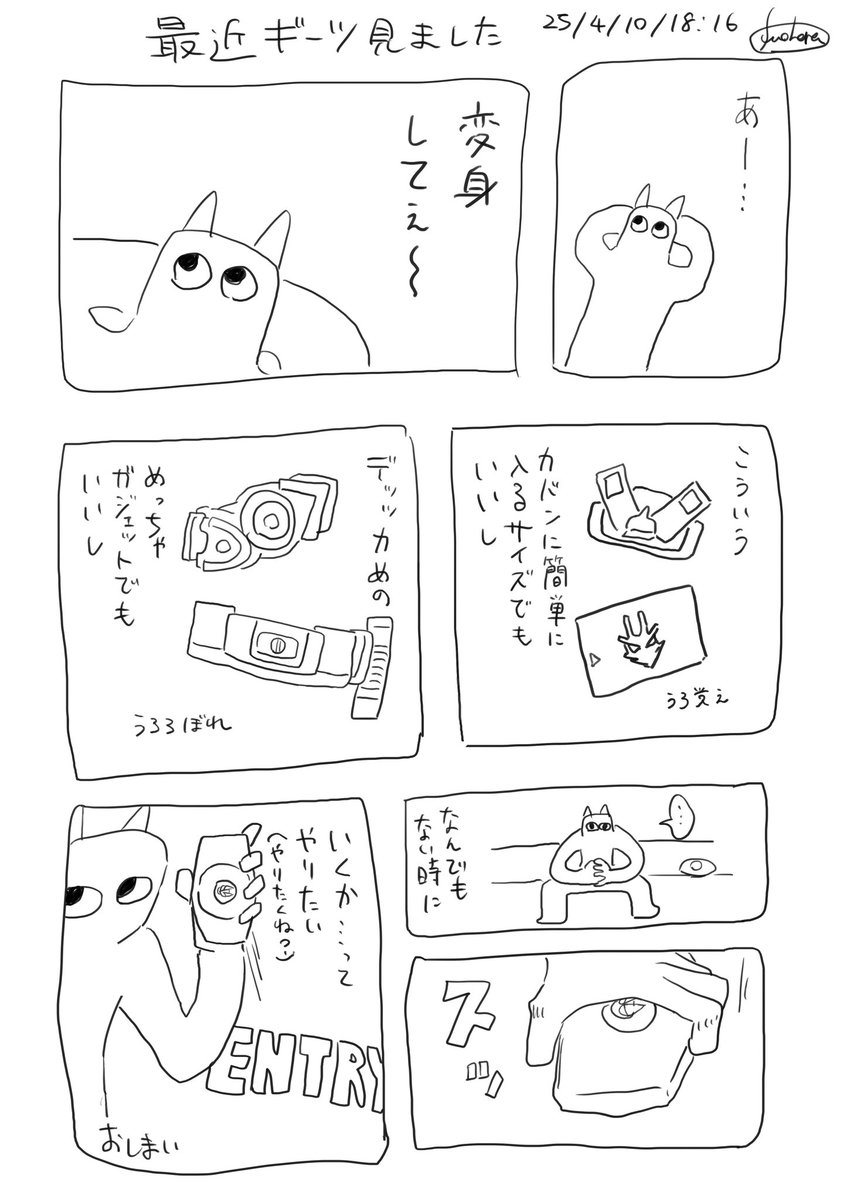 最近ギーツ見ました
25/4/10/18:16
あー…
変身
してぇ〜
こういう
カバンに簡単に
入るサイズでも
いいし
うろ覚え
デッッカめの
めっちゃ
ガジェットでも
いいし
うろろぼれ
…
なんでも
ない時に
スッ
いくか…って
やりたい
(やりたくね?)
ENTRY
おしまい